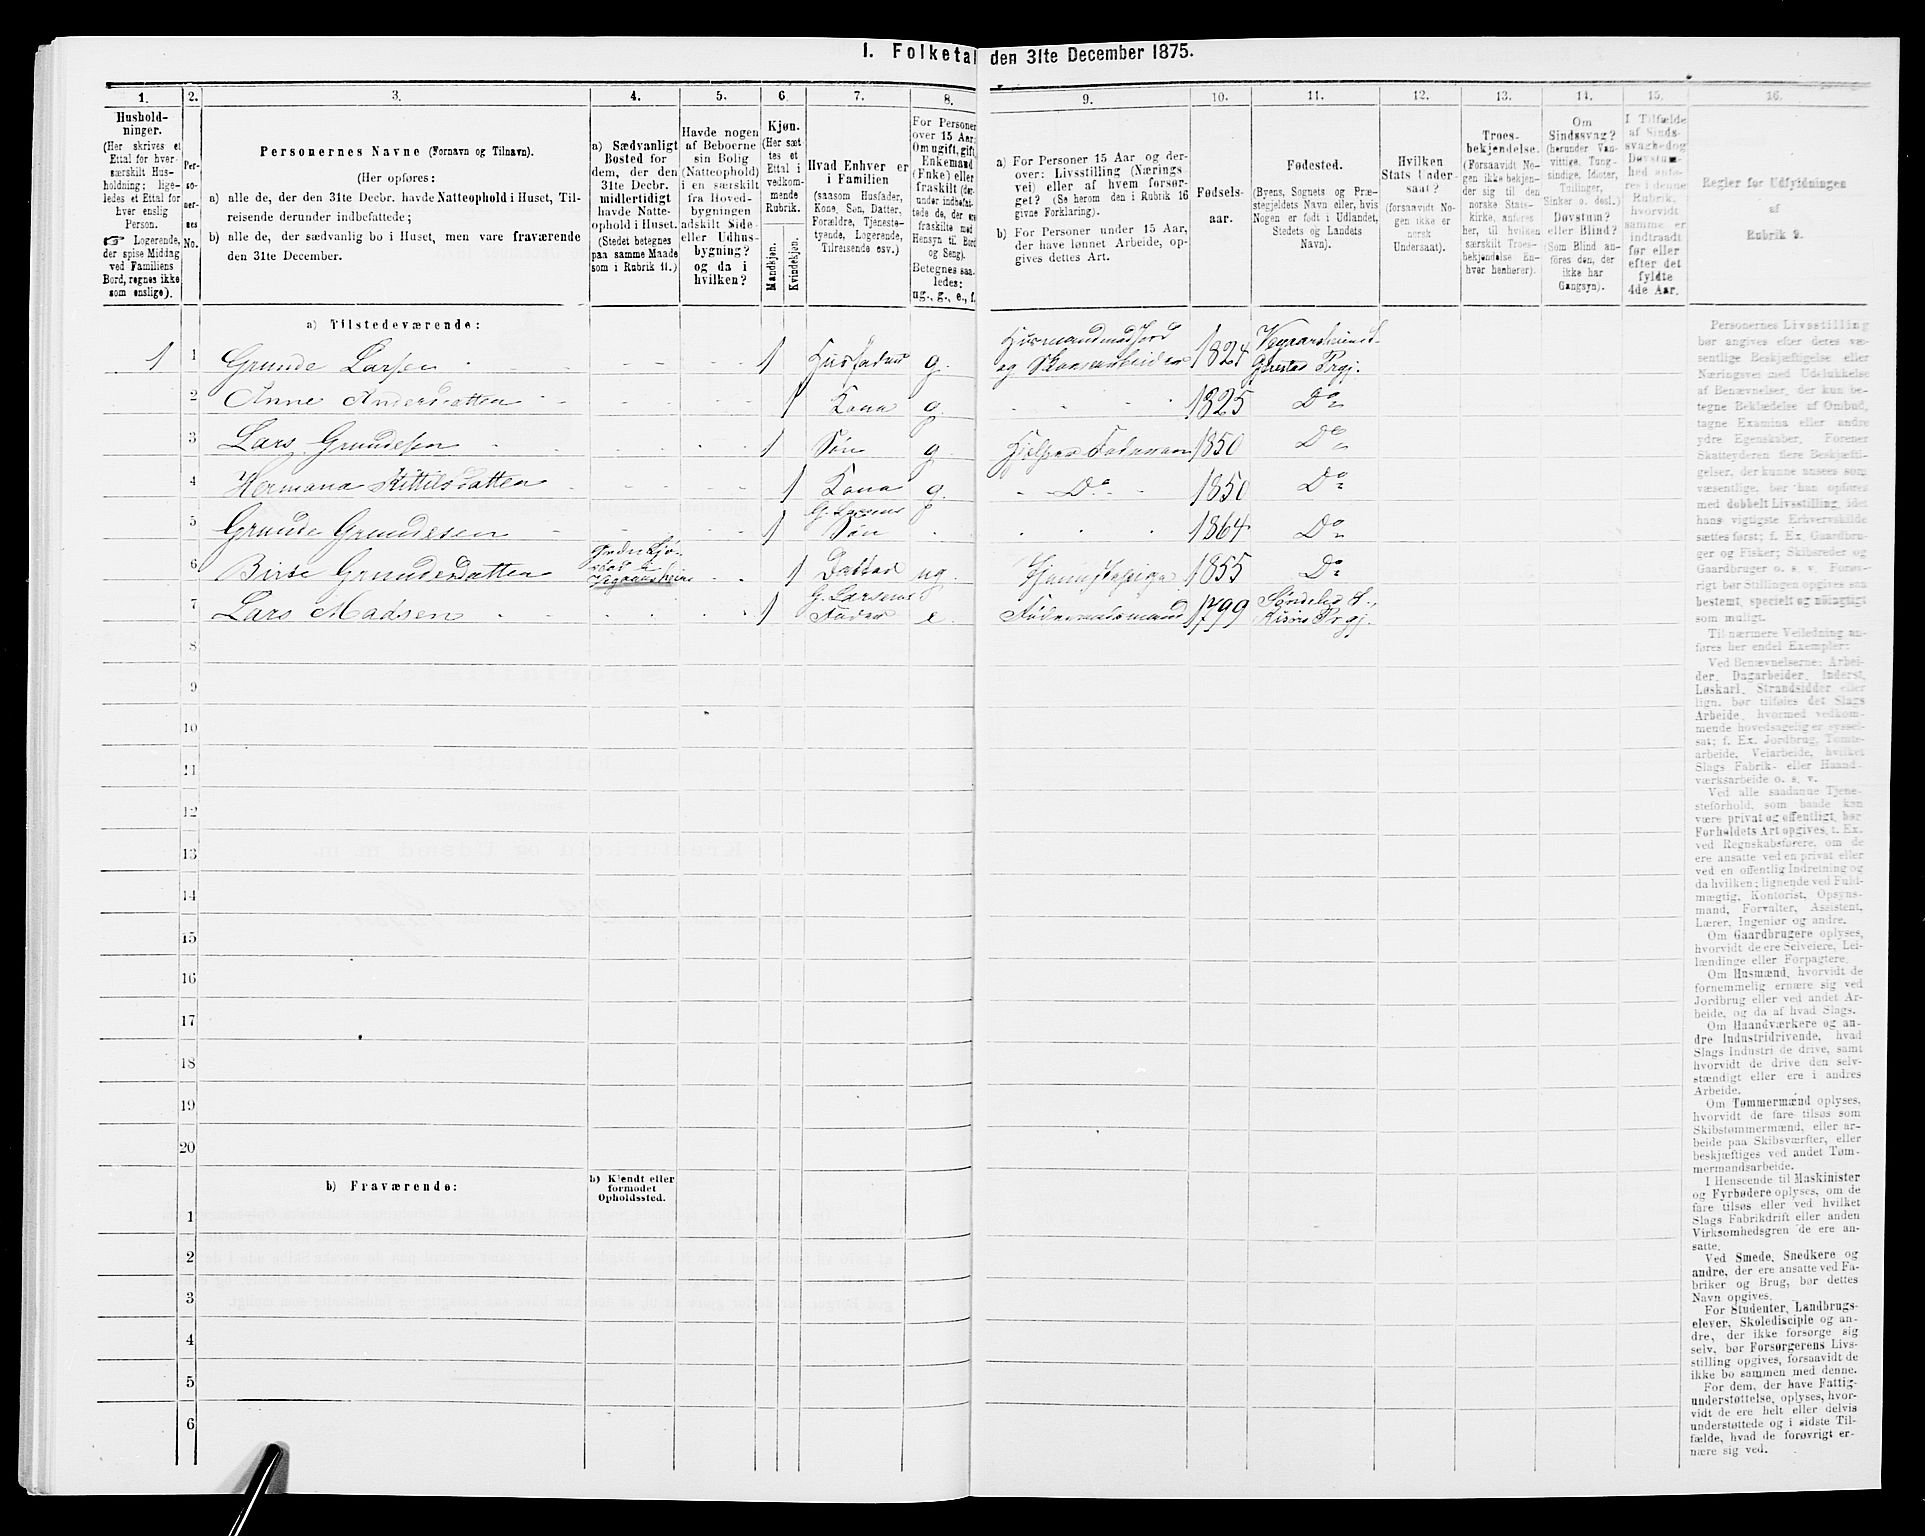 I. Folketal den 31te December 1875.
1. 2. 3. 4. 5. 6. 7. 8. 9. 10. 11. 12. 13. 14. 15. 16.
Hushold-
ninger.
(Her skrives et
Ettal for hver
særskilt Hus-
holdning; lige-
ledes et Ettal for
hver enslig
Person.
☞ Logerende,
der spise Middag
ved Familiens
Bord, regnes ikke
som enslige).
Per-
so-
ner-
nes
No.
Personernes Navne (Fornavn og Tilnavn).
(Her opføres:
a) alle de, der den 31te Decbr. havde Natteophold i Huset, Til-
reisende derunder indbefattede;
b) alle de, der sædvanlig bo i Huset, men vare fraværende
den 31te December.
a) Sædvanligt
Bosted for
dem, der den
31te Decbr.
midlertidigt
havde Natte-
ophold i Huset.
(Stedet betegnes
paa samme Maade
som i Rubrik 11.)
Havde nogen
af Beboerne
sin Bolig
(Natteophold)
i en særskilt
fra Hoved-
bygningen
adskilt Side-
eller Udhus-
bygning?
og da i
hvilken?
Kjøn.
(Her sæt-
tes et
Ettal i
vedkom-
mende
Rubrik.
Mandkjøn.
Kvindekjøn.
Hvad Enhver er
i Familien
(saasom Husfader,
Kone, Søn, Datter,
Forældre, Tjeneste-
tyende, Logerende,
Tilreisende osv.)
For Personer
over 15 Aar:
Om ugift, gift,
Enkemand
(Enke) eller
fraskilt (der-
under indbefat-
tede de, der ere
fraskilte med
Hensyn til Bord
og Seng).
Betegnes saa-
ledes:
ug., g., e., f.
a) For Personer 15 Aar og der-
over: Livsstilling (Nærings-
vei) eller af hvem forsør-
get? (Se herom den i Rubrik 16
givne Forklaring).
b) For Personer under 15 Aar,
der have lønnet Arbeide, op-
gives dettes Art.
Fødsels-
aar.
Fødested.
(Byens, Sognets og Præ-
stegjeldets Navn eller, hvis
Nogen er født i Udlandet,
Stedets og Landets
Navn).
Hvilken
Stats Under-
saat?
(forsaavidt No-
gen ikke er
norsk
Undersaat).
Troes-
bekjendelse.
(Forsaavidt No-
gen ikke bekjen-
der sig til den
norske Stats-
kirke, anføres
her, til hvilken
særskilt Troes-
bekjendelse En-
hver henhører).
Om
Sindssvag?
(herunder Van-
vittige, Tung-
sindige, Idioter,
Tullinger,
Sinker o. desl.)
Døvstum?
eller Blind?
(Som Blind an-
føres den, der
ikke har
Gangsyn).
I Tilfælde
af Sinds-
svaghed og
Døvstum-
hed anfø-
res i denne
Rubrik,
hvorvidt
samme er
indtraadt
før eller
efter det
fyldte
4de Aar.
Regler for Udfyldningen
af
Rubrik 9.
a) Tilstedeværende:
1 1 Grunde Larsen 1 Husfader g. Husmand med Jord og Skovarbeider 1824 Vegaarsheiend S. Gjerestad Prgj.
2 Anne Andersdatten 1 Kona g. 1825 Do
3 Lars Grundesen 1 Søn g. Hjelper Faderen 1850 Do
4 Hermana Kittilsdatten 1 Kona g. Do 1850 Do
5 Grunde Grundesen 1 G. Larsens Søn 1864 Do
6 Birte Grundesdatten 1 Datter ug. Tjenestepige 1855 Do
7 Lars Madsen 1 G. Larsens Fader e. Føderaadsmand 1799 Søndeled S., Risørs Prgj.
8
9
10
11
12
13
14
15
16
17
18
19
20
b) Fraværende:
b) Kjendt eller
formodet
Opholdssted.
1
2
3
4
5
6
Personernes Livsstilling
bør angives efter deres væ-
sentlige Beskjæftigelse eller
Næringsvei med Udelukkelse
af Benævnelser, der kun be-
tegne Beklædelse af Ombud,
tagne Examina eller andre
ydre Egenskaber. Forener
Skatteyderen flere Beskjæfti-
gelser, der kunne ansees som
væsentlige, bør han opføres
med dobbelt Livsstilling, idet
hans vigtigste Erhvervskilde
sættes først; f. Ex. Gaardbru-
ger og Fisker; Skibsreder og
Gaardbruger o. s. v. Forøv-
rigt bør Stillingen opgives saa
bestemt, specielt og nøiagtigt
som muligt.
Til nærmere Veiledning an-
føres her endel Exempler:
Ved Benævnelserne: Arbei-
der, Dagarbeider, Inderst,
Løskarl, Strandsidder eller
lign. bør tilføies det Slags
Arbeide, hvormed vedkom-
mende hovedsagelig er syssel-
sat; f. Ex. Jordbrug, Tømte-
arbeide, Veiarbeide, hvilket
Slags Fabrik- eller Haand-
værksarbeide o. s. v.
Ved alle saadanne Tjene-
steforhold, som baade kan
være privat og offentligt, bør
Forholdets Art opgives, t. Ex.
ved Regnskabsførere, om de
ere ansatte ved en privat eller
ved en offentlig Indretning og
da hvilken; lignende ved Fuld-
mægtig, Kontorist, Opsyns-
mand, Forvalter, Assistent,
Lærer, Ingeniør og andre.
Om Gaardbrugere oplyses,
hvorvidt de ere Selveiere, Lei-
lændinge eller Forpagtere.
Om Husmænd, hvorvidt de
fornemmelig ernære sig ved
Jordbrug eller ved andet Ar-
beide, og da af hvad Slags.
Om Haandværkere og an-
dre Industridrivende, hvad
Slags Industri de drive, samt
hvorvidt de drive den selv-
stændigt eller ere i andres
Arbeide.
Om Tømmermænd oplyses,
hvorvidt de fare tilsøs som
Skibstømmermænd, eller ar-
beide paa Skibsværfter, eller
beskjæftiges ved andet Tøm-
mermandsarbeide.
I Henseende til Maskinister
og Fyrbødere oplyses, om de
fare tilsøs eller ved hvilket
Slags Fabrikdrift eller anden
Virksomhedsgren de ere an-
satte.
Ved Smede, Snedkere og
andre, der ere ansatte ved Fa-
briker og Brug, bør dettes
Navn opgives.
For Studenter, Landbrugs-
elever, Skoledisciple og an-
dre, der ikke forsørge sig
selv, bør Forsørgerens Livs-
stilling opgives, forsaavidt de
ikke bo sammen med denne.
For dem, der have Fattig-
understøttelse, oplyses, hvor-
vidt de ere helt eller delvis
understøttede og i sidste Til-
fælde, hvad de forøvrigt er-
nære sig ved.